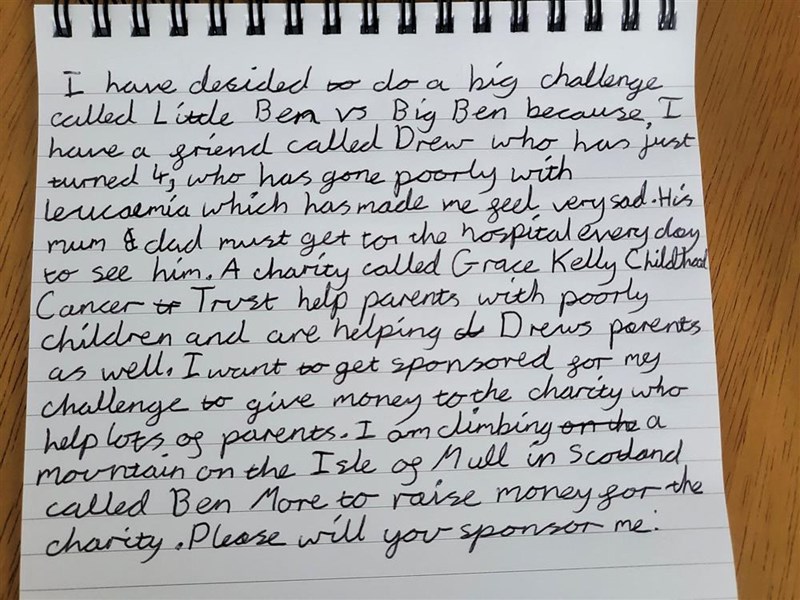 I have desided to do a big challenge
called Little Ben vs Big Ben because, I
have a friend called Drew who has just
turned 4, who has gone poorly with
leucaemia which has made me feel very sad. His
mum & dad must get to the hospital every day
to see him. A charity called Grace Kelly Childhood
Cancer Trust help parents with poorly
children and are helping Drews parents
as well. I want to get sponsored for my
challenge to give money to the charity who
help lots of parents. I am climbing on the a
mountain on the Isle of Mull in Scotland
called Ben More to raise money for the
charity. Please will you sponsor me.